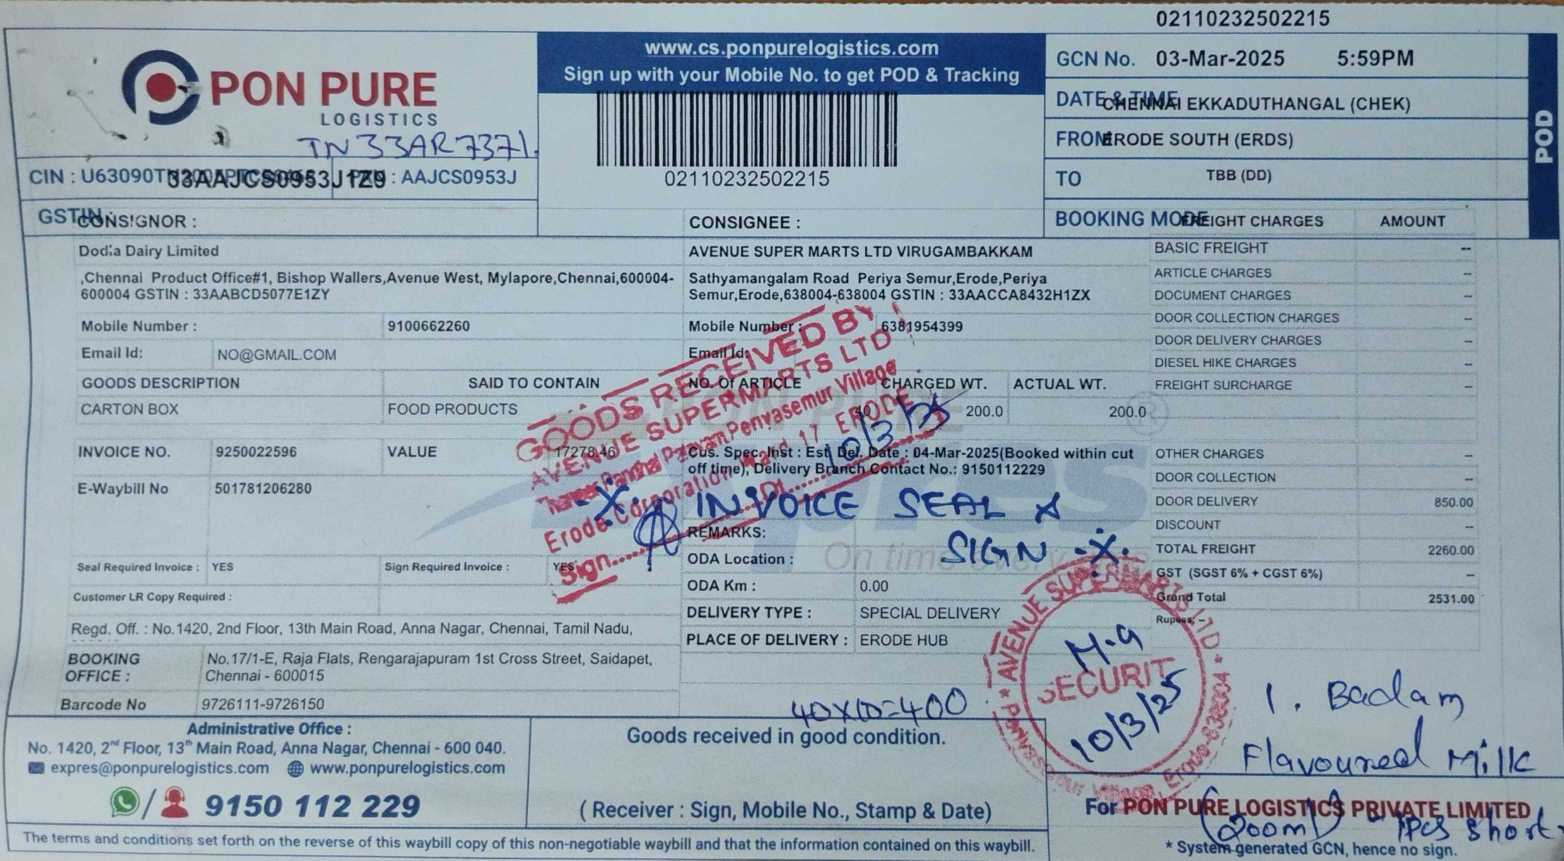 02110232502215
PON PURE
LOGISTICS
TN 33AR7371.
www.cs.ponpurelogistics.com
Sign up with your Mobile No. to get POD & Tracking
02110232502215
GCN No. 03-Mar-2025 5:59PM
DATE & TIME CHENNAI EKKADUTHANGAL (CHEK)
FROM ERODE SOUTH (ERDS)
TO TBB (DD)
POD
CIN : 33AAJCS0953J1Z9 : AAJCS0953J
GSTIN
BOOKING MODE
CONSIGNOR :
Dodla Dairy Limited
,Chennai Product Office#1, Bishop Wallers,Avenue West, Mylapore,Chennai,600004-
600004 GSTIN : 33AABCD5077E1ZY
Mobile Number : 9100662260
Email Id: NO@GMAIL.COM
CONSIGNEE :
AVENUE SUPER MARTS LTD VIRUGAMBAKKAM
Sathyamangalam Road Periya Semur,Erode,Periya
Semur,Erode,638004-638004 GSTIN : 33AACCA8432H1ZX
Mobile Number : 6381954399
Email Id:
GOODS DESCRIPTION SAID TO CONTAIN NO. Of ARTICLE CHARGED WT. ACTUAL WT.
CARTON BOX FOOD PRODUCTS 40 200.0 200.0
INVOICE NO. 9250022596 VALUE 17278.46
E-Waybill No 501781206280
Cus. Spec. Inst : Est. Del. Date : 04-Mar-2025(Booked within cut
off time), Delivery Branch Contact No.: 9150112229
INVOICE SEAL &
SIGN
REMARKS:
ODA Location :
ODA Km : 0.00
DELIVERY TYPE : SPECIAL DELIVERY
PLACE OF DELIVERY : ERODE HUB
Seal Required Invoice : YES Sign Required Invoice : YES
Customer LR Copy Required :
Regd. Off. : No.1420, 2nd Floor, 13th Main Road, Anna Nagar, Chennai, Tamil Nadu,
BOOKING OFFICE : No.17/1-E, Raja Flats, Rengarajapuram 1st Cross Street, Saidapet,
Chennai - 600015
Barcode No 9726111-9726150
FREIGHT CHARGES AMOUNT
BASIC FREIGHT --
ARTICLE CHARGES --
DOCUMENT CHARGES --
DOOR COLLECTION CHARGES --
DOOR DELIVERY CHARGES --
DIESEL HIKE CHARGES --
FREIGHT SURCHARGE --
OTHER CHARGES --
DOOR COLLECTION --
DOOR DELIVERY 850.00
DISCOUNT --
TOTAL FREIGHT 2260.00
GST (SGST 6% + CGST 6%) --
Grand Total 2531.00
Rupees: --
GOODS RECEIVED BY
AVENUE SUPERMARTS LTD
Village
Erode Corporation Ward 17 ERODE
Dt 10/3/25
Sign
AVENUE SUPERMARTS LTD
SECURITY
Village, Erode-638004
M-9
10/3/25
40x10=400
1. Badam
Flavoured Milk
(200ml) - 1Pcs short.
Administrative Office :
No. 1420, 2nd Floor, 13th Main Road, Anna Nagar, Chennai - 600 040.
expres@ponpurelogistics.com www.ponpurelogistics.com
/ 9150 112 229
Goods received in good condition.
( Receiver : Sign, Mobile No., Stamp & Date)
For PON PURE LOGISTICS PRIVATE LIMITED
* System generated GCN, hence no sign.
The terms and conditions set forth on the reverse of this waybill copy of this non-negotiable waybill and that the information contained on this waybill.